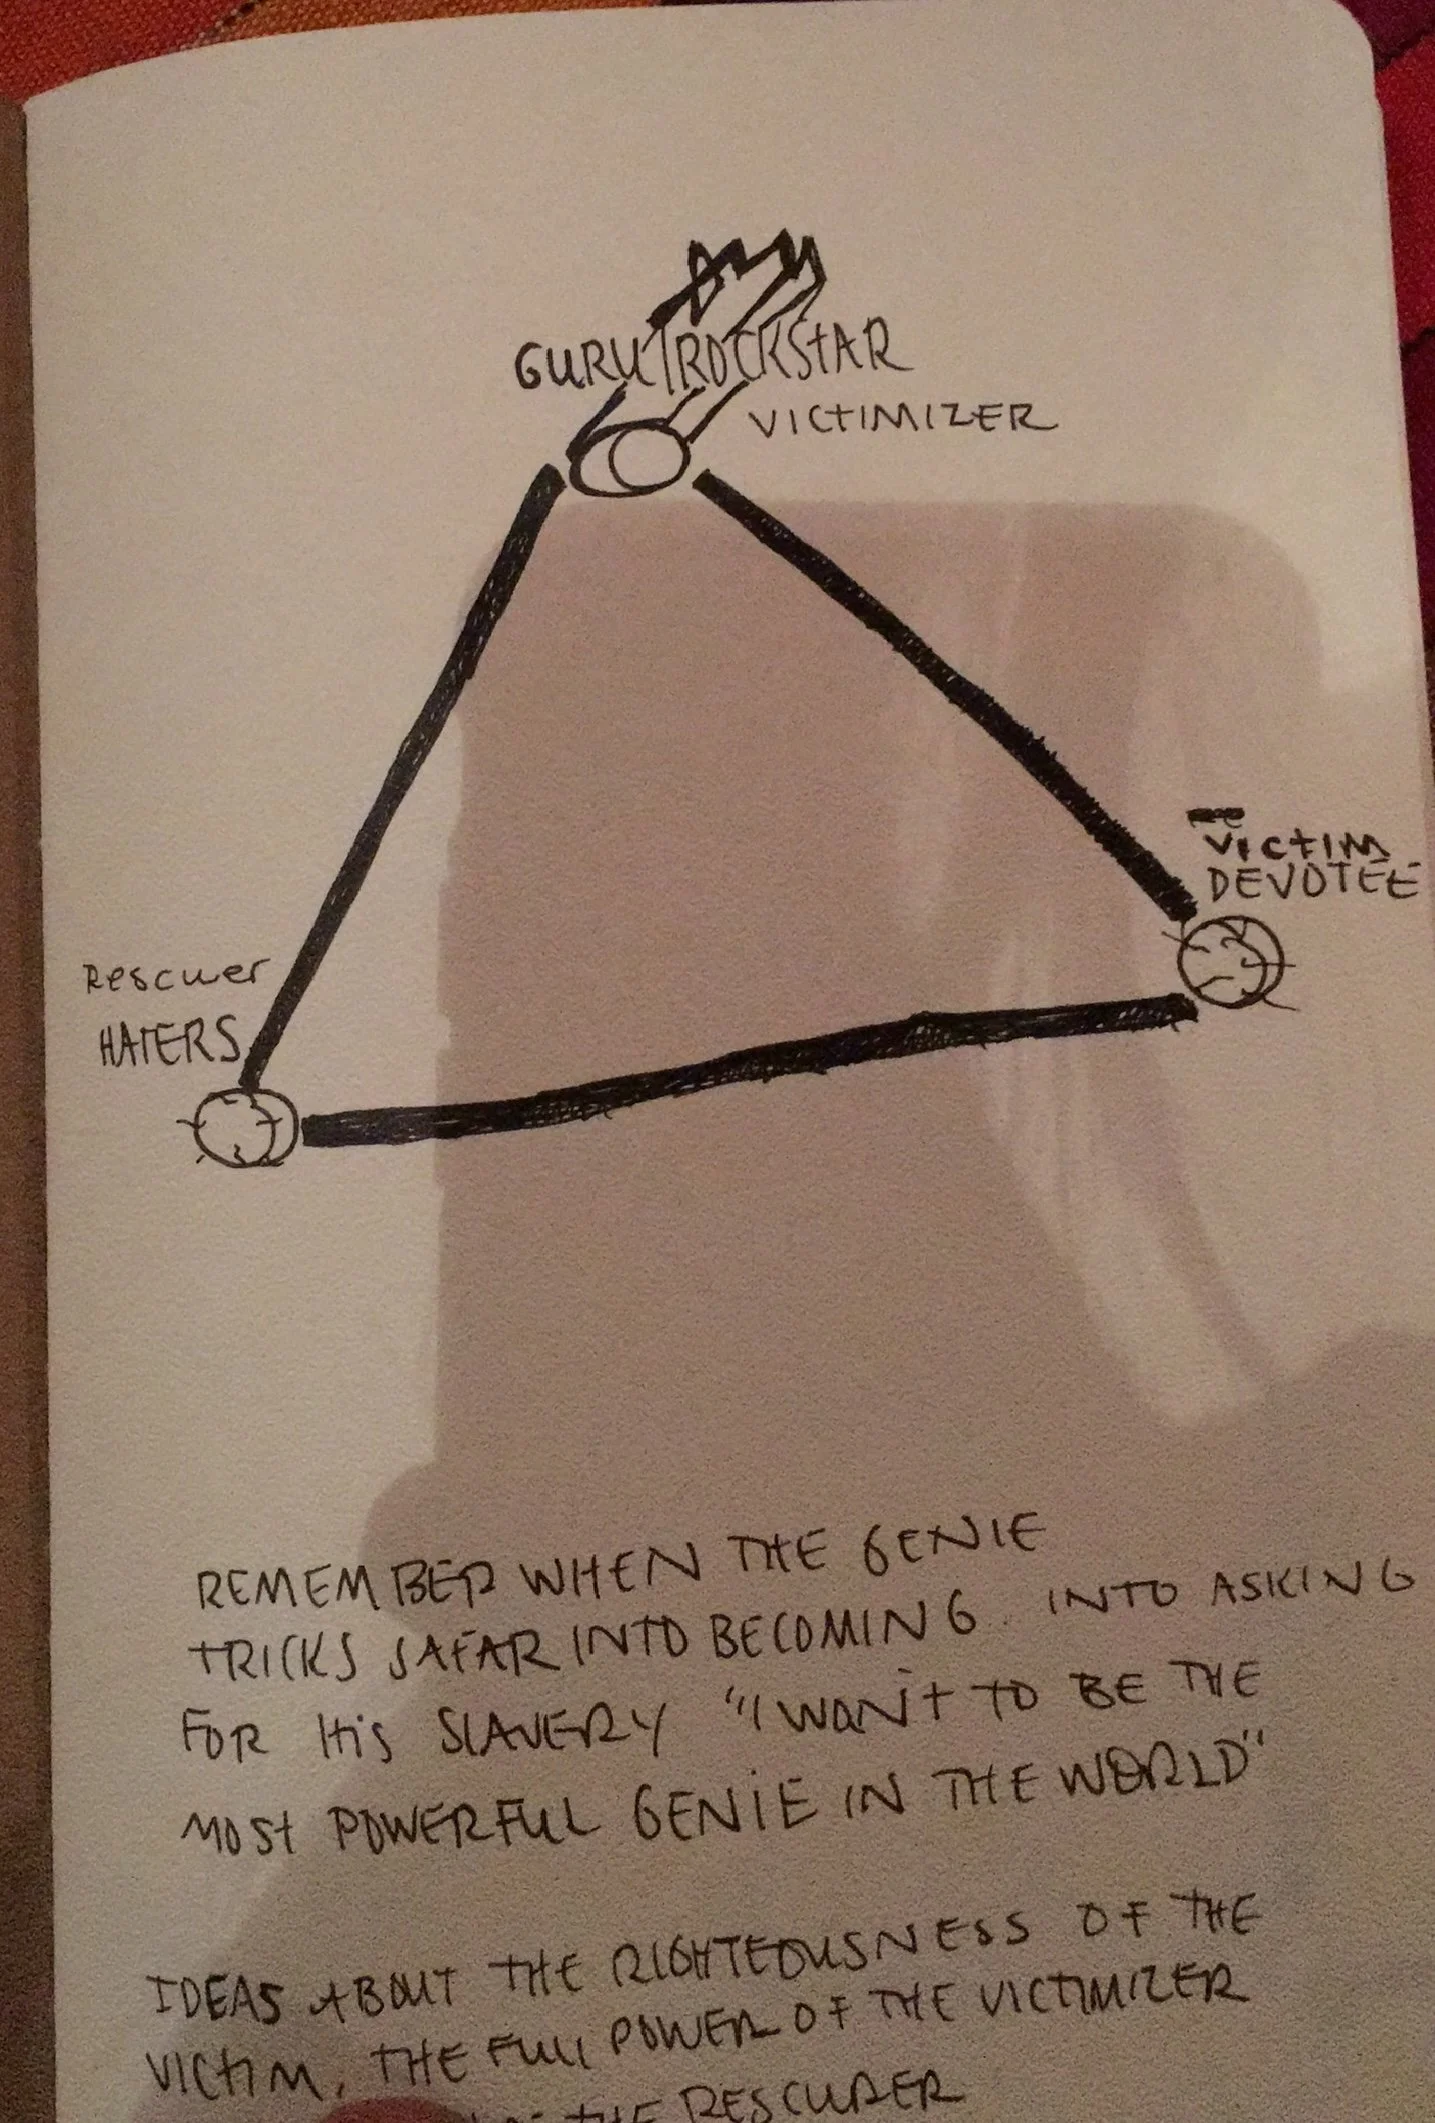 GURU/ROCKSTAR
VICTIMIZER
VICTIM
DEVOTEE
Rescuer
HATERS
REMEMBER WHEN THE GENIE
TRICKS JAFAR INTO BECOMING. INTO ASKING
FOR HIS SLAVERY "I WANT TO BE THE
MOST POWERFUL GENIE IN THE WORLD"
IDEAS ABOUT THE RIGHTEOUSNESS OF THE
VICTIM, THE FULL POWER OF THE VICTIMIZER
THE RESCURER